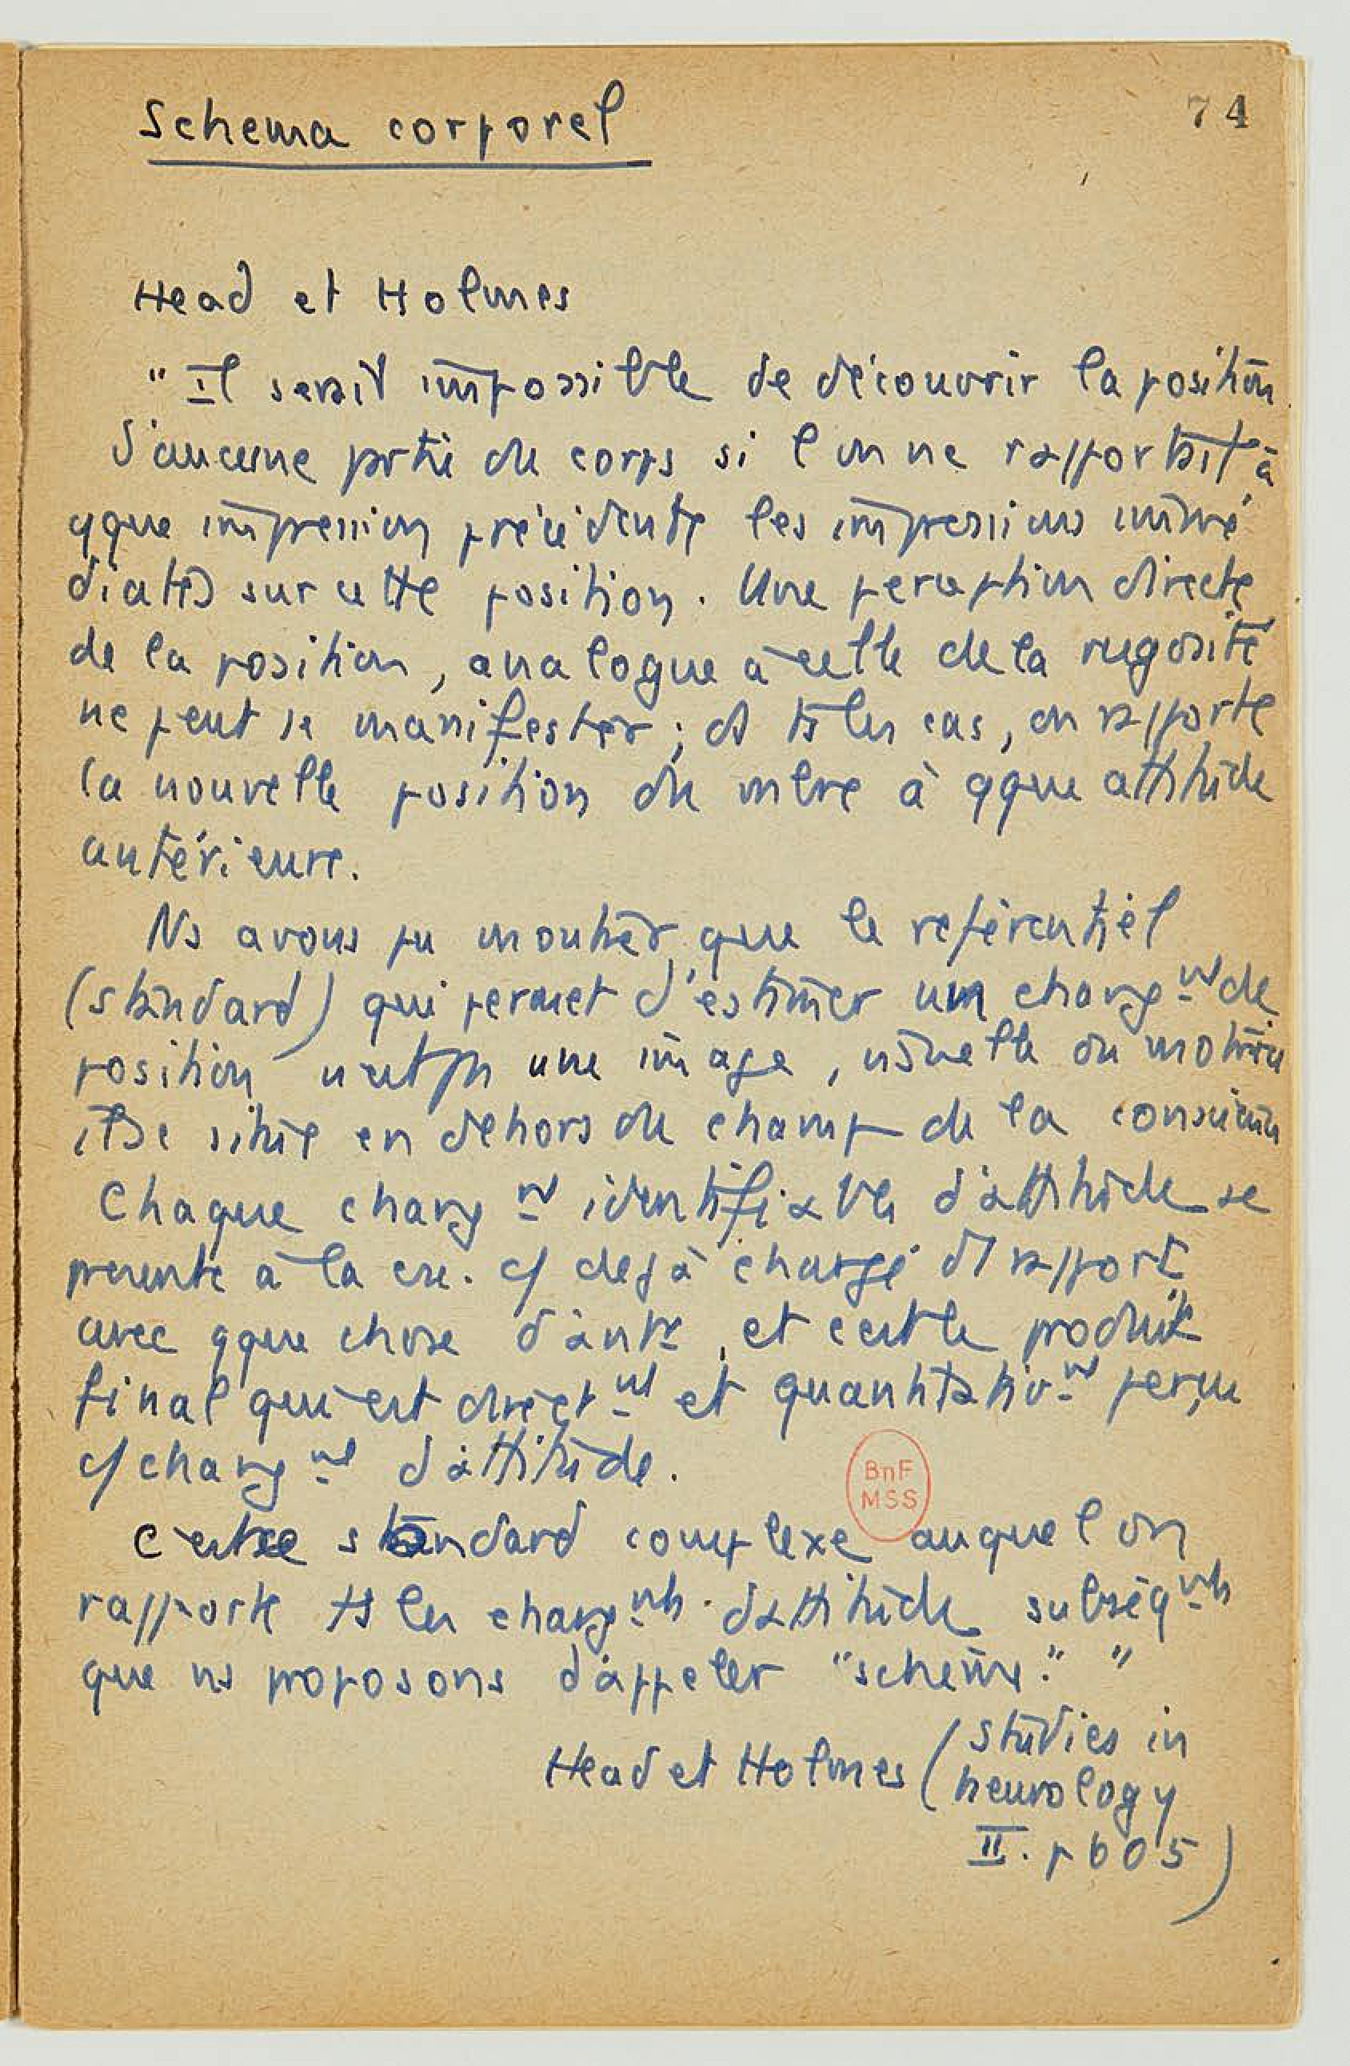 Schema corporel
74
Head et Holmes
"Il serait impossible de découvrir la position
d'aucune prtie du corps si l'on ne rapportait à
qque impression précédente les impressions immé
diates sur cette position. Une perception directe
de la position, analogue à celle de la rugosité
ne peut se manifester ; ds ts les cas, on rapporte
la nouvelle position du mbre à qque attitude
antérieure.
Ns avons pu montrer que le référentiel
(standard) qui permet d'estimer un changnt de
position n'est pas une image, visuelle ou motrice
il se situe en dehors du champ de la conscience
Chaque changnt identifiable d'attitude se
présente à la csce. déjà chargé rapport
avec qque chose d'autre, et c'est le produit
final qui est directnt et quantitativnt perçu
changnt d'attitude.
C'est ce standard complexe auquel on
rapporte ts les changnts d'attitude subséqnts
que ns proposons d'appeler "schème." "
Head et Holmes (Studies in
neurology
II. p 605)
BnF
MSS